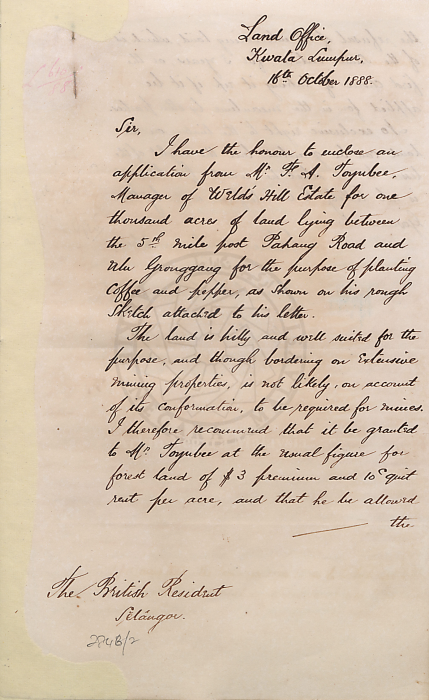 Land Office,
Kwala Lumpur,
16th October 1888.
Sir,
I have the honour to enclose an
application from Mr. F. A. Toynbee,
Manager of Weld's Hill Estate for one
thousand acres of land lying between
the 5th mile post Pahang Road and
Ulu Gronggang for the purpose of planting
Coffee and pepper, as shown on his rough
Sketch attached to his letter.
The land is hilly and well suited for the
purpose, and though bordering on Extensive
mining properties, is not likely, on account
of its conformation, to be required for mines.
I therefore recommend that it be granted
to Mr. Toynbee at the usual figure for
forest land of $3 premium and 10c quit
rent per acre, and that he be allowed
the
The British Resident
Selangor.
284B/2